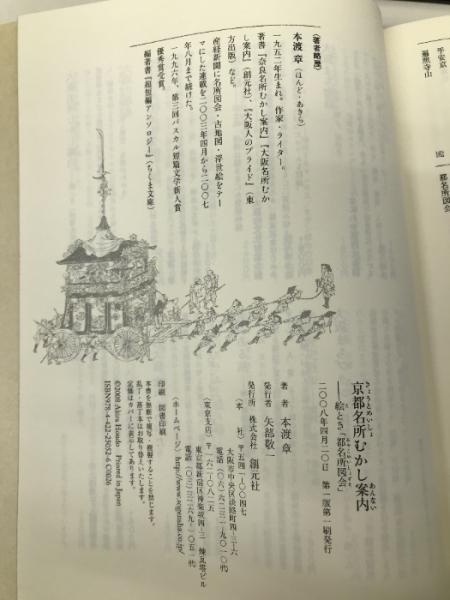 平安京
遍照寺山
都名所図会
〈著者略歴〉
本渡 章（ほんど・あきら）
一九五二年生まれ。作家・ライター。
著書『奈良名所むかし案内』『大阪名所むか
し案内』（創元社）、『大阪人のプライド』（東
方出版）など。
産経新聞に名所図会・古地図・浮世絵をテー
マにした連載を二〇〇三年四月から二〇〇七
年八月まで続けた。
一九九六年、第三回パスカル短篇文学新人賞
優秀賞受賞。
編著書『超短編アンソロジー』（ちくま文庫）
京都名所むかし案内
きょうとめいしょ
あんない
――絵とき「都名所図会」
二〇〇八年四月二〇日 第一版第一刷発行
著者 本渡 章
発行者 矢部敬一
発行所 株式会社 創元社
〈本 社〉〒五四一-〇〇四七
大阪市中央区淡路町四-三-六
電話（〇六）六二三一-九〇一〇㈹
〈東京支店〉〒一六二-〇八二五
東京都新宿区神楽坂四-三 煉瓦塔ビル
電話（〇三）三二六九-一〇五一㈹
〈ホームページ〉http://www.sogensha.co.jp/
印刷 図書印刷
本書を無断で複写・複製することを禁じます。
乱丁・落丁本はお取り替えいたします。
定価はカバーに表示してあります。
©2008 Akira Hondo Printed in Japan
ISBN978-4-422-25052-6 C0026